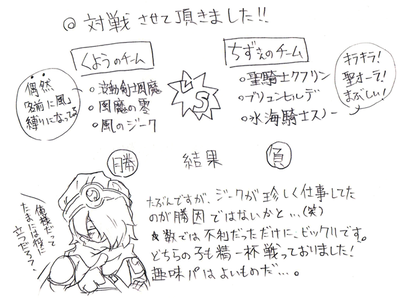 ◎ 対戦させて頂きました!!
くようのチーム
・波動剣士風魔
・風魔の零
・風のジーク
偶然
名前に「風」
縛りになってる
VS
ちずえのチーム
・聖騎士クフリン
・ブリュンヒルデ
・氷海騎士スノー
キラキラ!
聖オーラ!
まぶしい!
勝 結果 負
たぶんですが、ジークが珍しく仕事してた
のが勝因ではないかと…(笑)
★数では不利だっただけに、ビックリです。
どちらの子も精一杯戦っておりました!
趣味パはよいものだ…。
俺様だって
たまには役に
立つだろう?